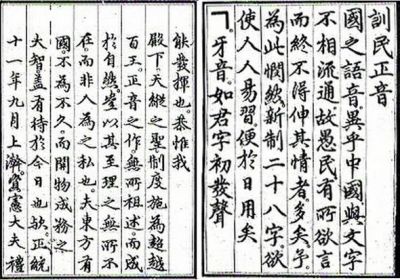 訓民正音
國之語音。異乎中國。與文字
不相流通。故愚民。有所欲言
而終不得伸其情者。多矣。予。
為此憫然。新制二十八字。欲
使人人易習。便於日用矣
ㄱ。牙音。如君字初發聲
能發揮也。恭惟我
殿下。天縱之聖。制度施為超越
百王。正音之作。無所祖述。而成
於自然。豈以其至理之無所不
在。而非人為之私也。夫東方有
國。不為不久。而開物成務之
大智。盖有待於今日也欤。正統
十一年九月上澣。資憲大夫禮